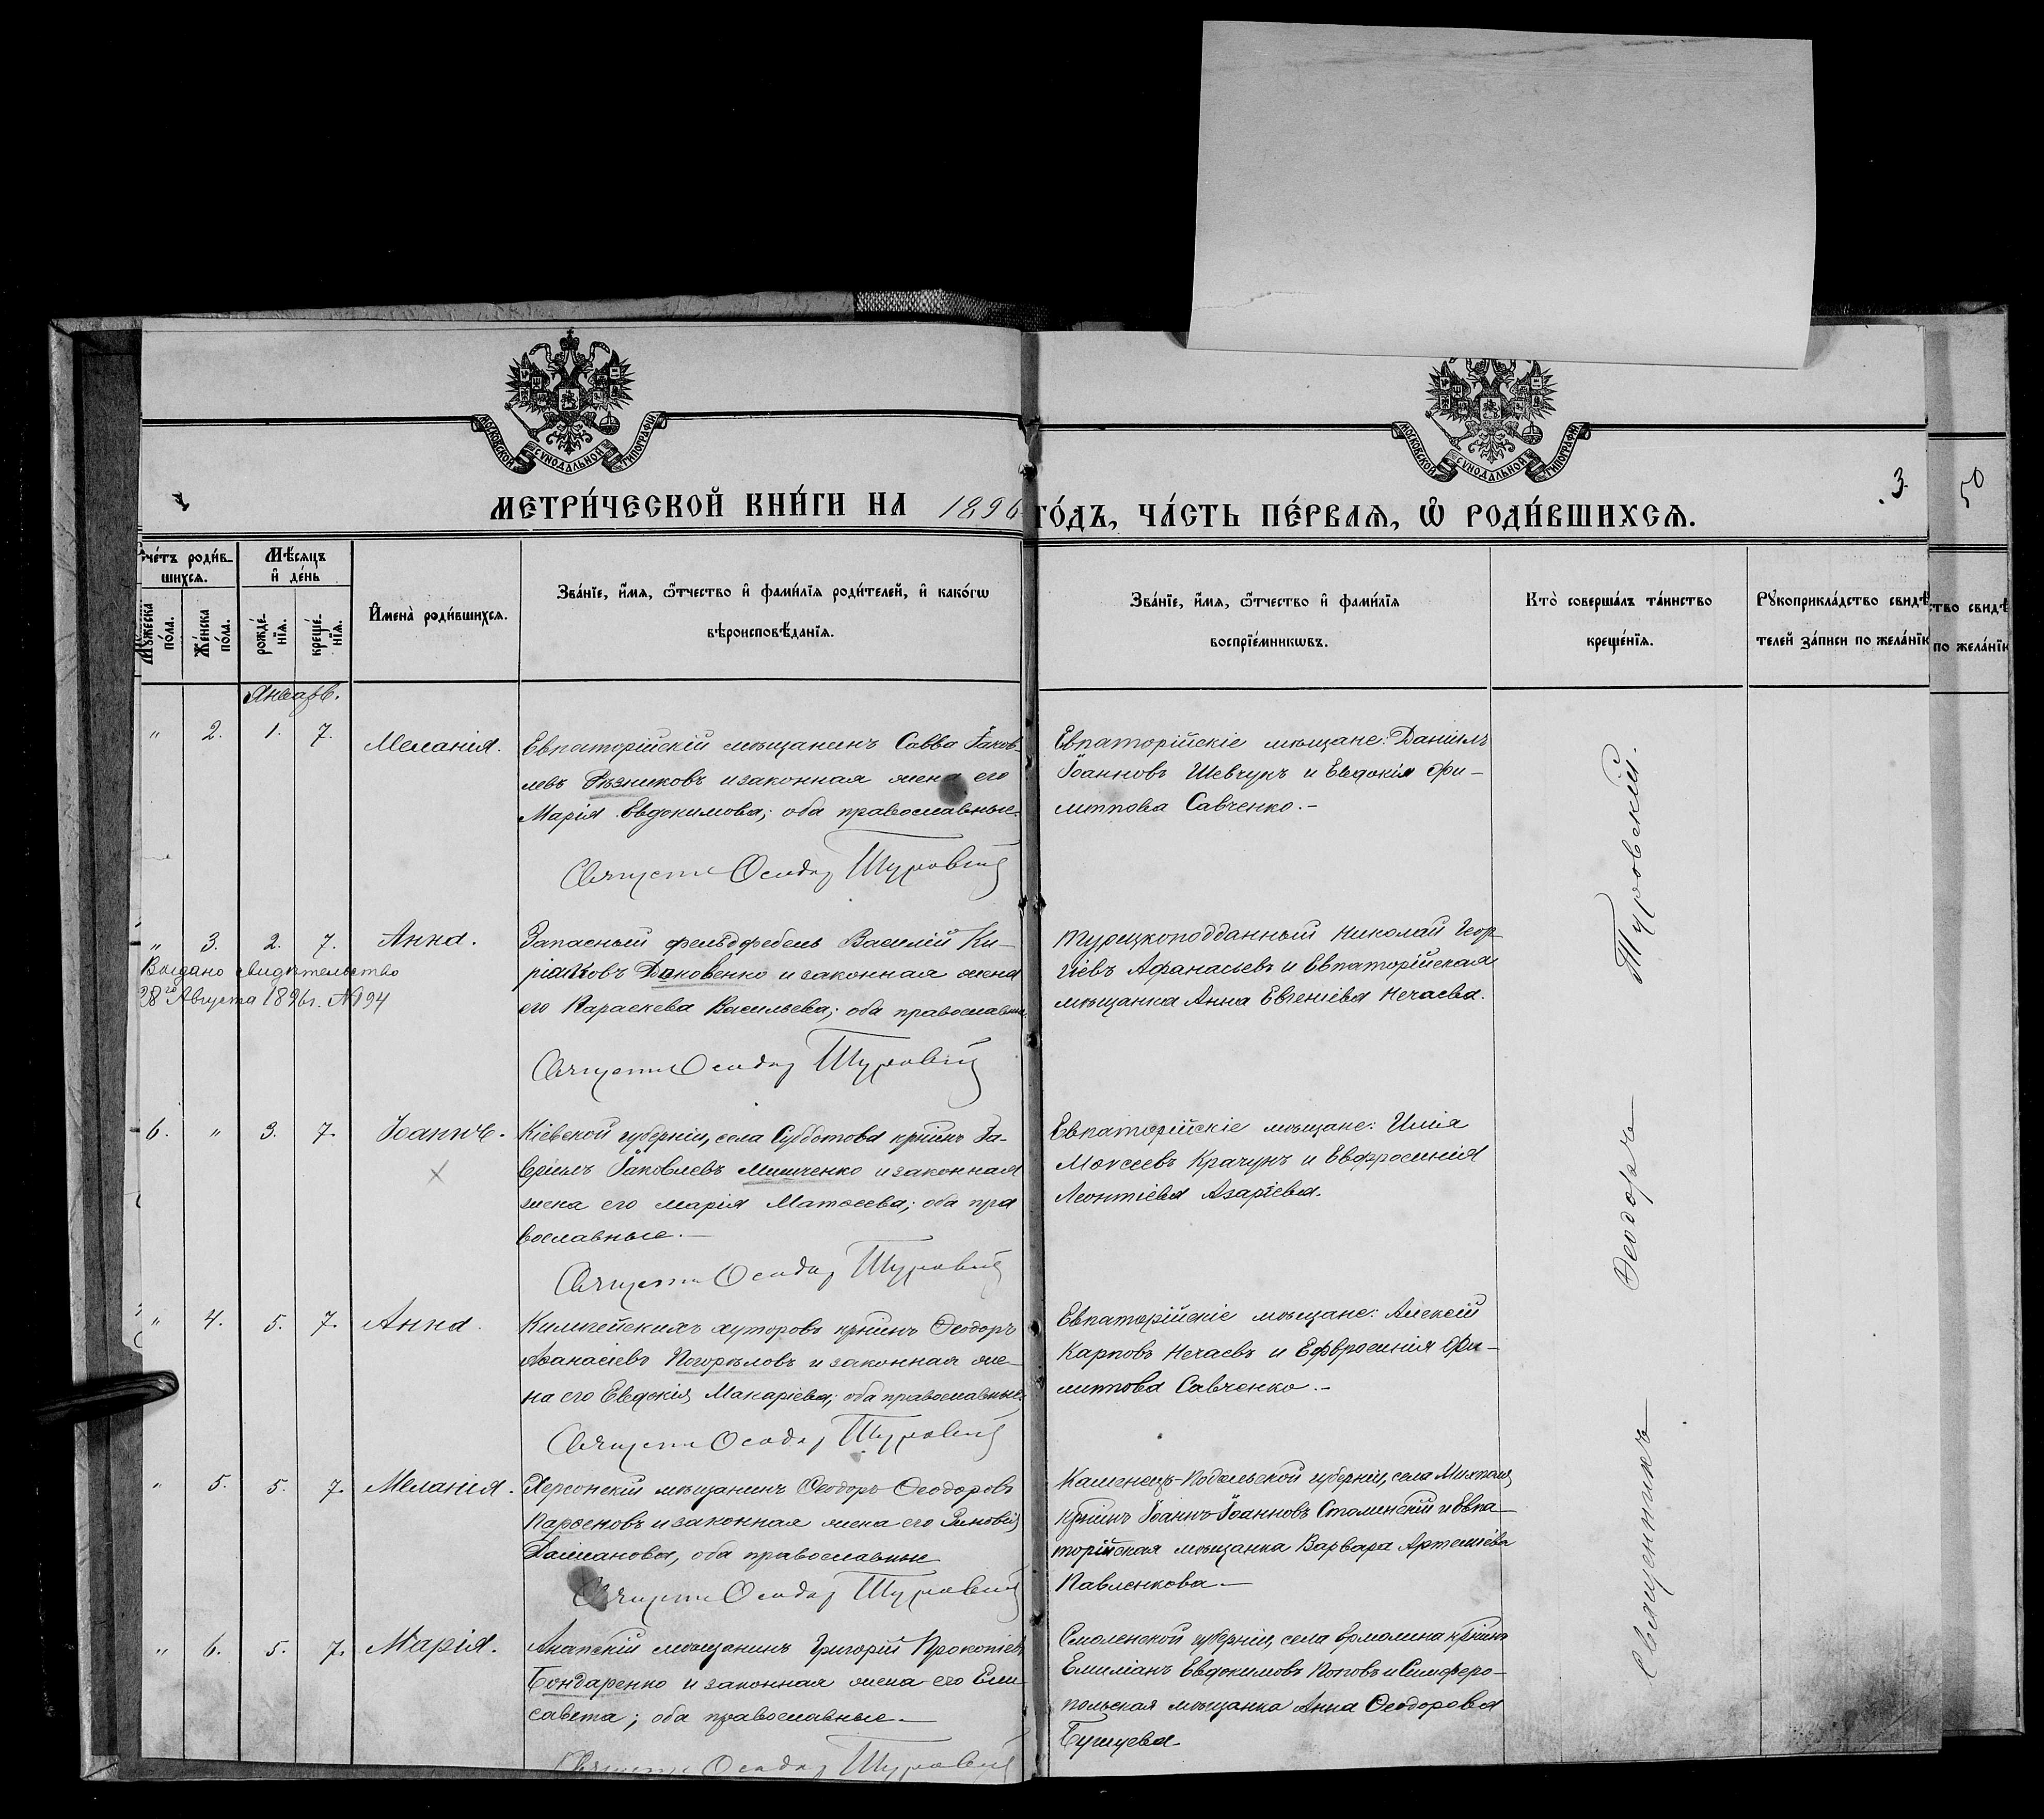 МОСКОВСКОЙ СѴНОДАЛЬНОЙ ТИПОГРАФІИ
МОСКОВСКОЙ СѴНОДАЛЬНОЙ ТИПОГРАФІИ
МЕТРИ́ЧЕСКОЙ КНИ́ГИ НА 1896
ГО́ДЪ, ЧА́СТЬ ПЕ́РВАѦ, Ѡ РОДИ́ВШИХСѦ.
3.
50
Сче́тъ роди́в-
шихсѧ.
Мѣ́сѧцъ
и҆ де́нь
Мꙋ́жеска по́ла.
Же́нска по́ла.
рожде́нїѧ.
креще́нїѧ.
И҆мена̀ роди́вшихсѧ.
Зва́нїе, и҆́мѧ, ѻ҆́тчество и҆ фами́лїѧ роди́телей, и҆ како́гѡ
вѣроисповѣ́данїѧ.
Зва́нїе, и҆́мѧ, ѻ҆́тчество и҆ фами́лїѧ
воспрїе́мникѡвъ.
Кто̀ соверша́лъ та́инство
креще́нїѧ.
Рꙋкоприкла́дство свидѣ́
телей за́писи по жела́нїю
ство свидѣ́
по жела́нїю
Январь.
" 2. 1. 7. Меланія.
Евпаторійскій мѣщанинъ Савва Іаков-
левъ Рѣзниковъ и законная жена его
Марія Евдокимова; оба православные.
Священ Ѳеодор Туровскій
Евпаторійскіе мѣщане: Даніилъ
Іоанновъ Шевчукъ и Евдокія Фи-
липпова Савченко.-
" 3. 2. 7. Анна.
Выдано свидѣтельство
28го Августа 1896г. №194
Запасный фельдфебель Василій Ки-
ріаковъ Даковенко и законная жена
его Параскева Васильева; оба православные.
Священ Ѳеодор Туровскій
Турецкоподданный Николай Геор-
гіевъ Афанасьевъ и Евпаторійская
мѣщанка Анна Евгеніева Нечаева.
6. " 3. 7. Іоаннъ.
Кіевской губерніи, села Субботова крнинъ Га-
вріилъ Іаковлевъ Мищенко и законная
жена его Марія Матѳеева; оба пра
вославные.-
Священ Ѳеодор Туровскій
Евпаторійскіе мѣщане: Илія
Моѵсеевъ Крачунъ и Евфросинія
Леонтіева Азаріева.
" 4. 5. 7. Анна.
хуторовъ крнинъ Ѳеодоръ
Аѳанасіевъ Погорѣловъ и законная же-
на его Евдокія Макаріева; оба православные.
Священ Ѳеодор Туровскій
Евпаторійскіе мѣщане: Алексій
Карповъ Нечаевъ и Ефвросинія Фи-
липпова Савченко.-
" 5. 5. 7. Меланія.
Херсонскій мѣщанинъ Ѳеодоръ Ѳеодоровъ
Парѳеновъ и законная жена его Зиновія
оба православные
Священ Ѳеодор Туровскій
Каменецъ-Подольской губерніи, села
крнинъ Іоаннъ Іоанновъ и Евпа-
торійская мѣщанка Варвара Артеміева
Павленкова.-
" 6. 5. 7. Марія.
Анапскій мѣщанинъ Григорій Прокопіевъ
Бондаренко и законная жена его Ели
савета; оба православные.-
Священ Ѳеодор Туровскій
Смоленской губерніи, села Ермолина крнинъ
Емиліанъ Евдокимовъ Поповъ и Симферо-
польская мѣщанка Анна Ѳеодорова
Священникъ Ѳеодоръ Туровскій.